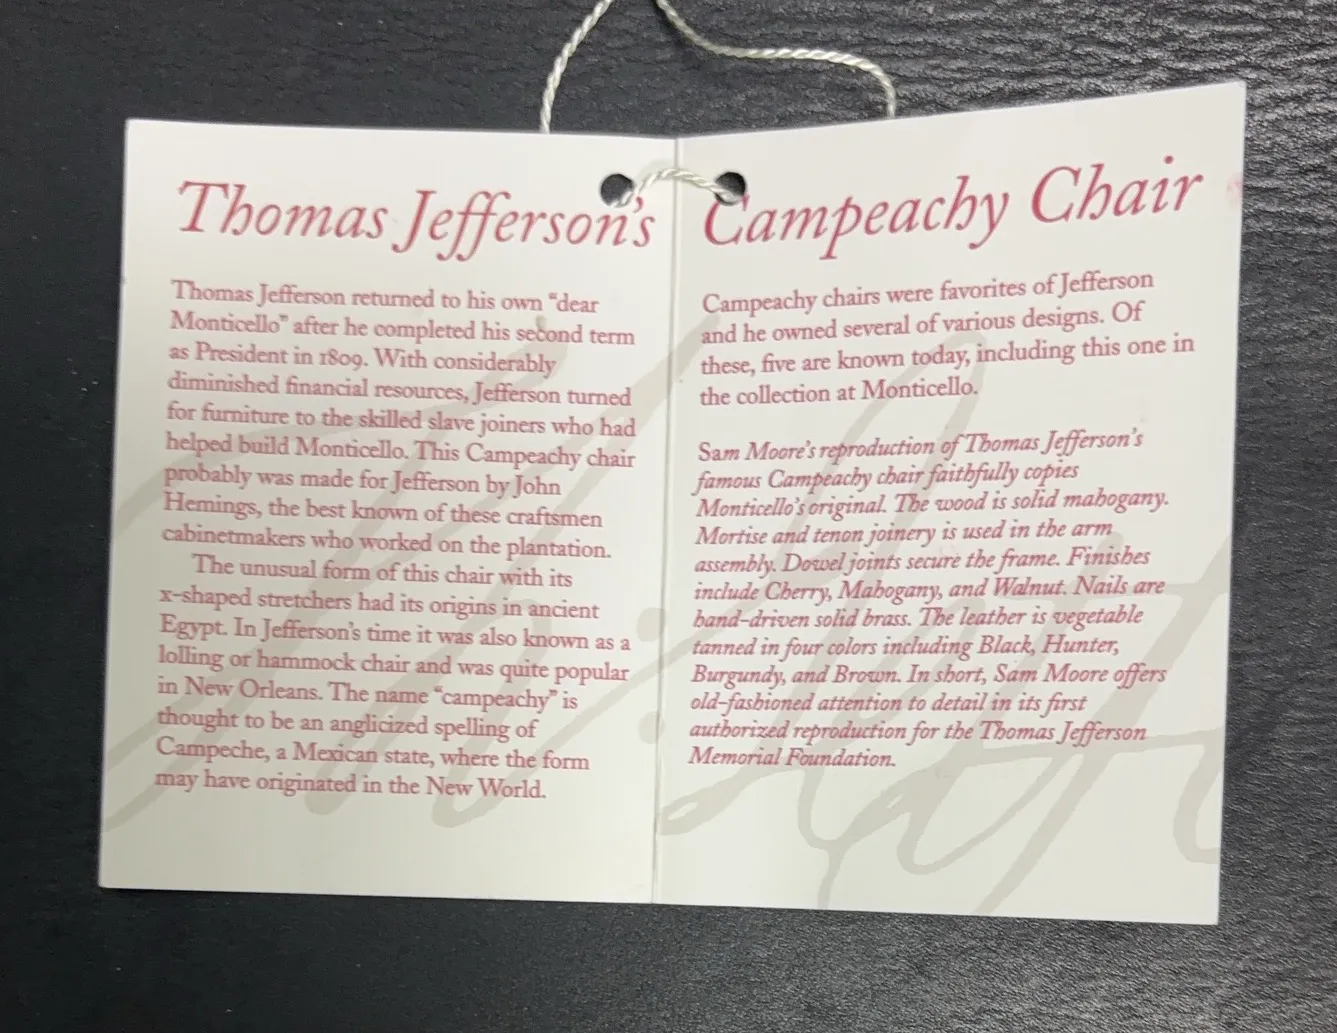 Thomas Jefferson's Campeachy Chair
Thomas Jefferson returned to his own "dear
Monticello" after he completed his second term
as President in 1809. With considerably
diminished financial resources, Jefferson turned
for furniture to the skilled slave joiners who had
helped build Monticello. This Campeachy chair
probably was made for Jefferson by John
Hemings, the best known of these craftsmen
cabinetmakers who worked on the plantation.
The unusual form of this chair with its
x-shaped stretchers had its origins in ancient
Egypt. In Jefferson's time it was also known as a
lolling or hammock chair and was quite popular
in New Orleans. The name "campeachy" is
thought to be an anglicized spelling of
Campeche, a Mexican state, where the form
may have originated in the New World.
Campeachy chairs were favorites of Jefferson
and he owned several of various designs. Of
these, five are known today, including this one in
the collection at Monticello.
Sam Moore's reproduction of Thomas Jefferson's
famous Campeachy chair faithfully copies
Monticello's original. The wood is solid mahogany.
Mortise and tenon joinery is used in the arm
assembly. Dowel joints secure the frame. Finishes
include Cherry, Mahogany, and Walnut. Nails are
hand-driven solid brass. The leather is vegetable
tanned in four colors including Black, Hunter,
Burgundy, and Brown. In short, Sam Moore offers
old-fashioned attention to detail in its first
authorized reproduction for the Thomas Jefferson
Memorial Foundation.